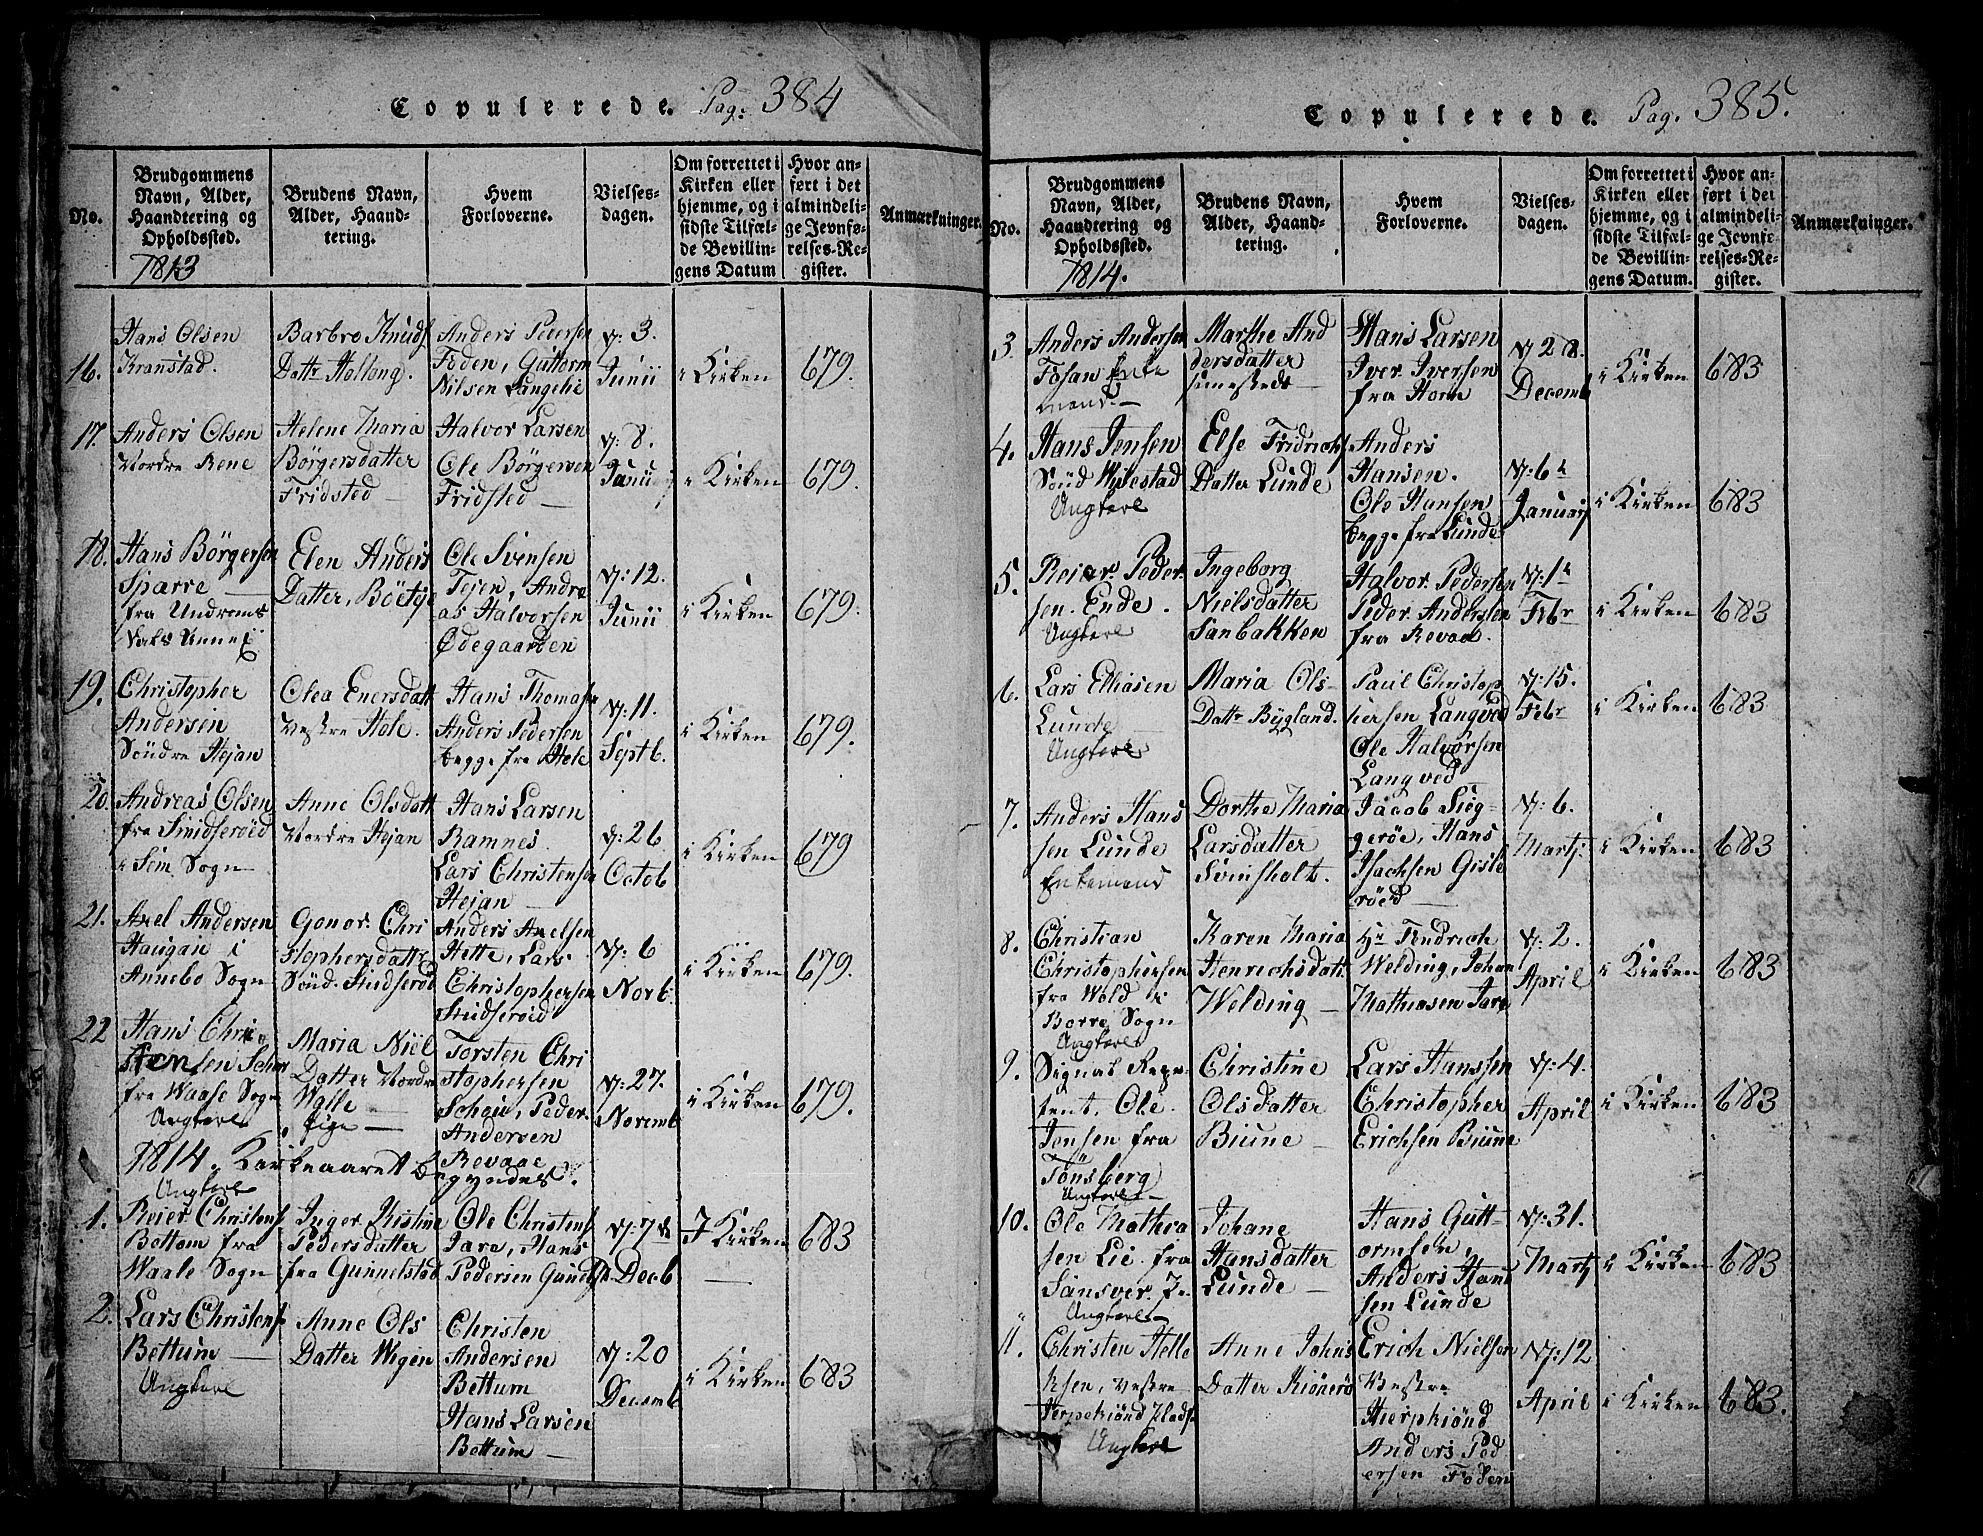 Copulerede. Pag. 384
No.
Brudgommens Navn, Alder, Haandtering og Opholdssted.
Brudens Navn, Alder, Haandtering.
Hvem Forloverne.
Vielsesdagen.
Om forrettet i Kirken eller hjemme, og i sidste Tilfælde Bevillingens Datum
Hvor anført i det almindelige Jevnførelses-Register.
Anmærkninger.
1813
16.
Hans Olsen
Kranstad.
Barbro Knuds
Datt. Hollong.
Anders Pedersen
Foden, Guttorm
Nilsen Langelie
d: 3.
Junii
i Kirken
679.
17.
Anders Olsen
Nordre Rene
Helene Maria
Börgersdatter
Fridsted —
Halvor Larsen
Ole Börgersen
Fridsted —
d: 8.
Junii
i Kirken
679.
18.
Hans Börgersen
Sparre —
fra Undrems
dals Annex
Elen Anders
Datter, Böetye
Ole Svinsen
Tejen, Andre
as Halvorsen
Ödegaarden
d: 12.
Junii
i Kirken
679.
19.
Christopher
Andersen
Söndre Hejan
Olea Enersdatt
Vestre Hole.
Hans Thomasen
Anders Pedersen
begge fra Hole
d: 11.
Septb.
i Kirken
679.
20.
Andreas Olsen
fra Smidseröed
i Sem Sogn
Anne Olsdatt
Nordre Hejan
Hans Larsen
Ramnes.
Lars Christensen
Hejan —
d: 26
Octob
i Kirken
679
21.
Axel Andersen
Haugan i
Annebo Sogn
Gonor Chri
stophersdatter
Sönd. Studseröd
Anders Axelsen
Hette, Lars
Christophersen
Studseröed
d: 6
Novb.
i Kirken
679.
22
Hans Chri
stensen Schou
fra Waale Sogn
Ungkarl
Maria Niel
Datter Nordre
Walle —
Pige —
Torsten Chri
stophersen
Schou, Peder
Andersen
Revaae
d: 27.
Novemb
i Kirken
679.
1814. Kirkeaaret begyndes.
Ungkarl
1.
Reier Christens
Bettom fra
Waale Sogn
Inger Kistine
Pedersdatter
fra Gunnelstad
Ole Christens
Jare, Hans
Pedersen Gunelst.
d: 7de
Decb
I Kirken
—
683
2.
Lars Christens
Bettum —
Ungkarl
Anne Ols
Datter Wegen
Christen
Andersen
Bettum
Hans Larsen
Bettum —
d: 20
Decemb
i Kirken
683
Copulerede. Pag. 385.
No.
Brudgommens Navn, Alder, Haandtering og Opholdssted.
Brudens Navn, Alder, Haandtering.
Hvem Forloverne.
Vielsesdagen.
Om forrettet i Kirken eller hjemme, og i sidste Tilfælde Bevillingens Datum.
Hvor anført i det almindelige Jevnførelses-Register.
Anmærkninger.
1814.
3
Anders Andersen
Fosan Enke
mand. —
Marthe And
dersdatter
simesteds —
Hans Larsen
Iver Iversen
fra Horn
d 28.
Decemb
i Kirken
683
4.
Hans Jensen
Sönd Wivestad
Ungkarl
Else Fridrichs
Datter Lunde
Anders
Hansen.
Ole Hansen
begge fra Lunde
d: 6te
Januarj
i Kirken
683
5.
Reier Peder
sen. Ende.
Ungkarl
Ingeborg
Nielsdatter
Sanbakken
Halvor Pedersen
Peder Anderssen
fra Revaae.
d: 1te
Febr
i Kirken
683
6.
Lars Elliasen
Lunde
Ungkarl
Maria Ols-
Datt. Bygland.
Paul Christop
hersen Langved
Ole Halvorsen
Langved
d: 15.
Febr
i Kirken
683
7.
Anders Hans
sen Lunde
Enkemand
Dorthe Maria
Larsdatter
Svinsholt.
Jacob Sig-
geröe, Hans
Isachsen Gisle
röed —
d: 6.
Martj:
i Kirken
683
8.
Christian
Christophersen
fra Wold i
Borre Sogn
Ungkarl
Karen Maria
Henrichsdatt.
Welding —
Hr Fendrich
Welding, Johan
Mathiasen Jare
d: 2.
April
i Kirken
683
9.
Signal Repe-
tent. Ole
Jonsen fra
Tönsberg
Ungkarl —
Christine
Olsdatter
Biune —
Lars Hanssen
Christopher
Erichsen Biune
d: 4.
April
i Kirken
683
10.
Ole Mathia
sen Lie. fra
Sansver. P.
Ungkarl —
Johane
Hansdatter
Lunde —
Hans Gutt-
ormsen,
Anders Han
sen Lunde
d: 31.
Martj
i Kirken
683
11.
Christen Helle
ksen, Vestre
Herpekiönd Plads
Ungkarl
Anne Johns
Datter Kiönerö
Erich Nielsen
Vestre
Hierpkiönd
Anders Ped
ersen Foden
d: 12
April
i Kirken
683.